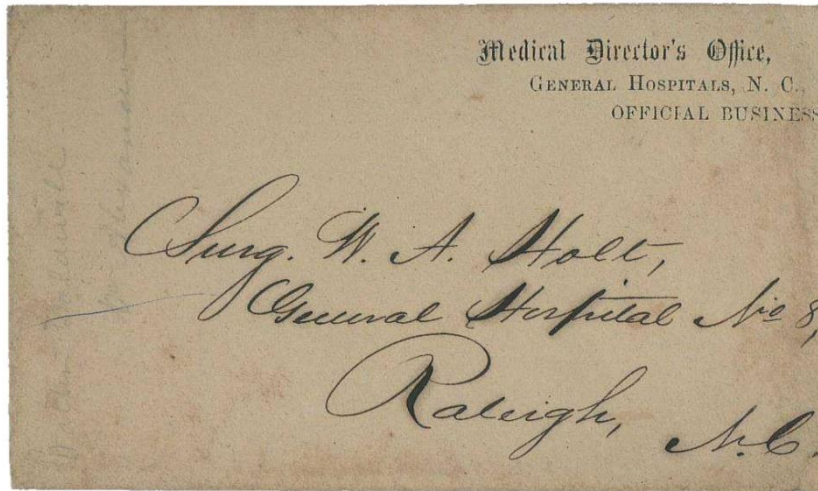 Medical Director's Office,
GENERAL HOSPITALS, N. C.,
OFFICIAL BUSINESS
Surg. W. A. Holt,
General Hospital No 8,
Raleigh, N.C.